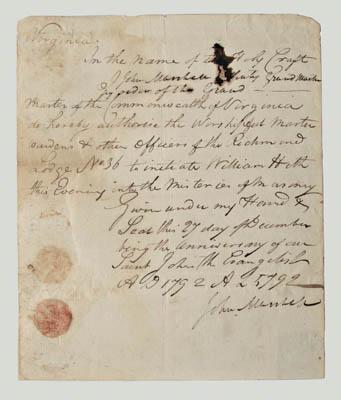 Virginia
In the name of the Holy Craft
I John Marshall Deputy Grand Master
by order of the Grand
Master of the Commonwealth of Virginia
do hereby authorise the Worshipful Master
wardens & other Officers of the Richmond
Lodge No 36 to initiate William Heth
this Evening into the Misteries of Masonry
Given under my Hand &
Seal this 27 day of December
being the anniversary of our
Saint John the Evangelist
A D 1792 A L 5792
John Marshall